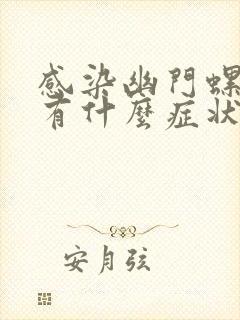 感染幽門螺
有什麼症狀
安月弦